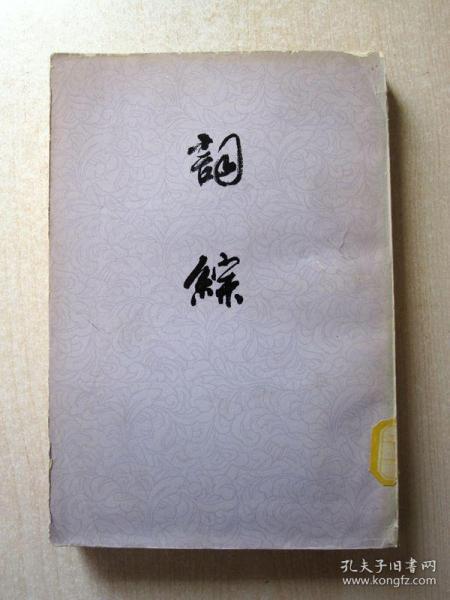 詞
綜
孔夫子旧书网
www.kongfz.com